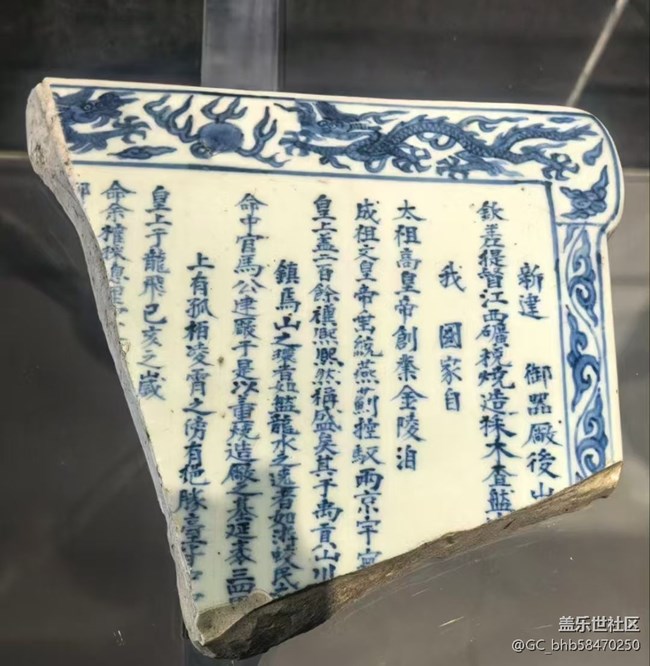 新建 御器厰後山
欽差提督江西礦稅燒造採木查鹽
我 國家自
太祖高皇帝創業金陵洎
成祖文皇帝統燕薊控馭兩京宇
皇上葢二百餘禩熙熙然稱盛矣其于禹貢山川
鎮馬山之環青如藍龍水之遶者如民
命中官馬公建厰于是以董燒造厰之基三四
上有孤栢凌霄之傍有
皇上于龍飛己亥之歲
命余榷
盖乐世社区
@GC_bhb58470250